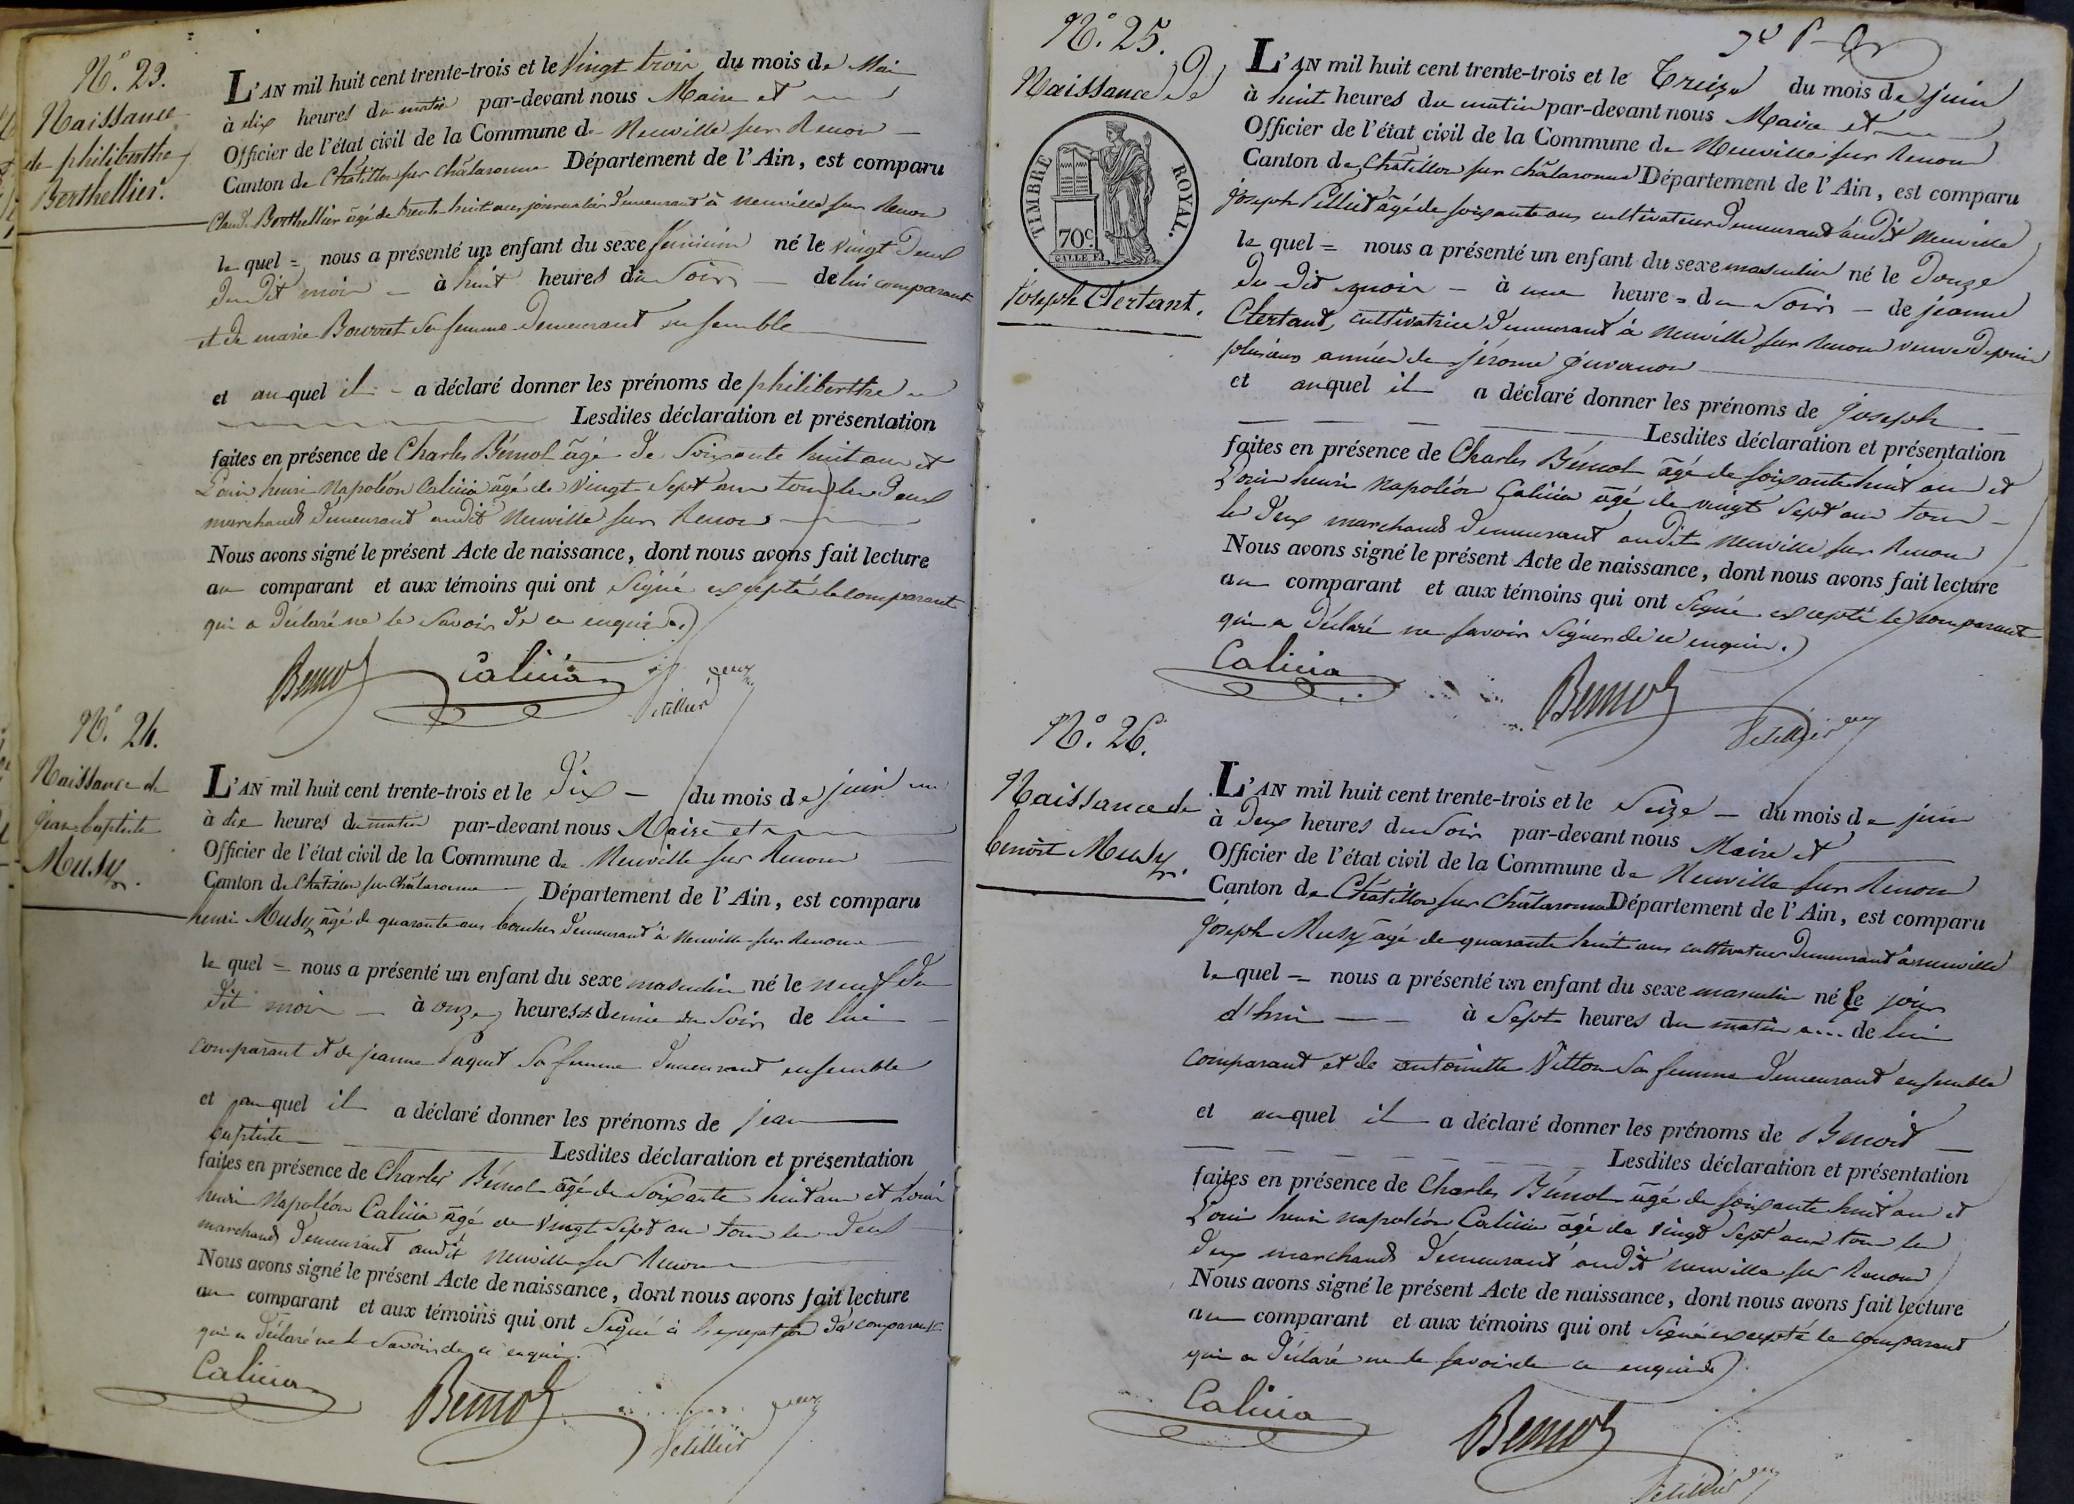 N° 23.
Naissance
de philiberthe
Berthellier.
L'AN mil huit cent trente-trois et le vingt trois du mois de Mai
à dix heures du matin par-devant nous Maire et
Officier de l'état civil de la Commune de Neuville sur Renon
Canton de Châtillon sur Châlaronne Département de l'Ain, est comparu
Claude Berthellier âgé de trente huit ans journalier demeurant à Neuville sur Renon
le quel = nous a présenté un enfant du sexe féminin né le vingt deux
du dit mois à huit heures du soir de lui comparant
et de marie Bouvret sa femme demeurant ensemble
et auquel il a déclaré donner les prénoms de philiberthe
Lesdites déclaration et présentation
faites en présence de Charles Bémol âgé de soixante huit ans et
Louis henri Napoléon Calicia âgé de vingt sept ans tous les deux
marchands demeurant audit Neuville sur Renon
Nous avons signé le présent Acte de naissance, dont nous avons fait lecture
au comparant et aux témoins qui ont signé excepté le comparant
qui a déclaré ne le savoir de ce enquis.
Bemol Calicia
N° 24.
Naissance de
jean baptiste
Musy.
L'AN mil huit cent trente-trois et le dix du mois de juin
à dix heures du matin par-devant nous Maire et
Officier de l'état civil de la Commune de Neuville sur Renon
Canton de Châtillon sur Châlaronne Département de l'Ain, est comparu
henri Musy âgé de quarante ans boucher demeurant à Neuville sur Renon
le quel = nous a présenté un enfant du sexe masculin né le neuf du
dit mois à onze heures & demie du soir de lui
comparant et de jeanne Paquet sa femme demeurant ensemble
et auquel il a déclaré donner les prénoms de jean
baptiste Lesdites déclaration et présentation
faites en présence de Charles Bémol âgé de soixante huit ans et Louis
henri Napoléon Calicia âgé de vingt sept ans tous les deux
marchands demeurant audit Neuville sur Renon
Nous avons signé le présent Acte de naissance, dont nous avons fait lecture
au comparant et aux témoins qui ont signé à l'exception du comparant
qui a déclaré ne le savoir de ce enquis.
Calicia Bemol
N° 25.
Naissance de
TIMBRE ROYAL.
70c
joseph Clertant.
L'AN mil huit cent trente-trois et le Treize du mois de juin
à huit heures du matin par-devant nous Maire et
Officier de l'état civil de la Commune de Neuville sur Renon
Canton de Châtillon sur Châlaronne Département de l'Ain, est comparu
joseph Pelliet âgé de soixante ans cultivateur demeurant audit Neuville
le quel = nous a présenté un enfant du sexe masculin né le douze
du dit mois à une heure = du soir de jeanne
Clertant, cultivatrice demeurant à Neuville sur Renon veuve depuis
plusieurs années de jérome
et auquel il a déclaré donner les prénoms de joseph
Lesdites déclaration et présentation
faites en présence de Charles Bémol âgé de soixante huit ans et
Louis henri Napoléon Calicia âgé de vingt sept ans tous
les deux marchands demeurant audit Neuville sur Renon
Nous avons signé le présent Acte de naissance, dont nous avons fait lecture
au comparant et aux témoins qui ont signé excepté le comparant
qui a déclaré ne savoir signer de ce enquis.
Calicia Bemol
N° 26.
Naissance de
benoit Musy.
L'AN mil huit cent trente-trois et le Seize du mois de juin
à deux heures du soir par-devant nous Maire et
Officier de l'état civil de la Commune de Neuville sur Renon
Canton de Châtillon sur Châlaronne Département de l'Ain, est comparu
joseph Musy âgé de quarante huit ans cultivateur demeurant à neuville
le quel = nous a présenté un enfant du sexe masculin né le jour
d'hui à sept heures du matin de lui
comparant et de antoinette Vitton sa femme demeurant ensemble
et auquel il a déclaré donner les prénoms de Benoit
Lesdites déclaration et présentation
faites en présence de Charles Bémol âgé de soixante huit ans et
Louis henri napoléon Calicia âgé de vingt sept ans tous les
deux marchands demeurant audit neuville sur Renon
Nous avons signé le présent Acte de naissance, dont nous avons fait lecture
au comparant et aux témoins qui ont signé excepté le comparant
qui a déclaré ne le savoir de ce enquis
Calicia Bemol